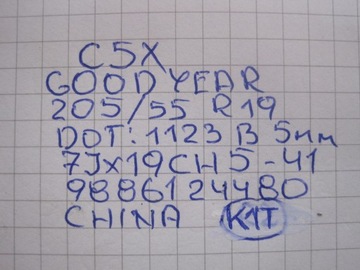 C5X
GOOD YEAR
205/55 R19
DOT:1123 B 5mm
7Jx19CH5-41
9886124480
CHINA K1T